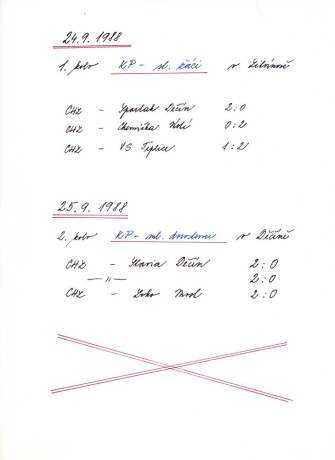 24.9.1988
1. kolo KP - st. žáci v Litvínově
CHZ - Spartak Děčín 2:0
CHZ - Chemička Ústí 0:2
CHZ - VS Teplice 1:2
25.9.1988
2. kolo KP - ml. dorostenci v Děčíně
CHZ - Slavia Děčín 2:0
— 11 — 2:0
CHZ - Loko Most 2:0